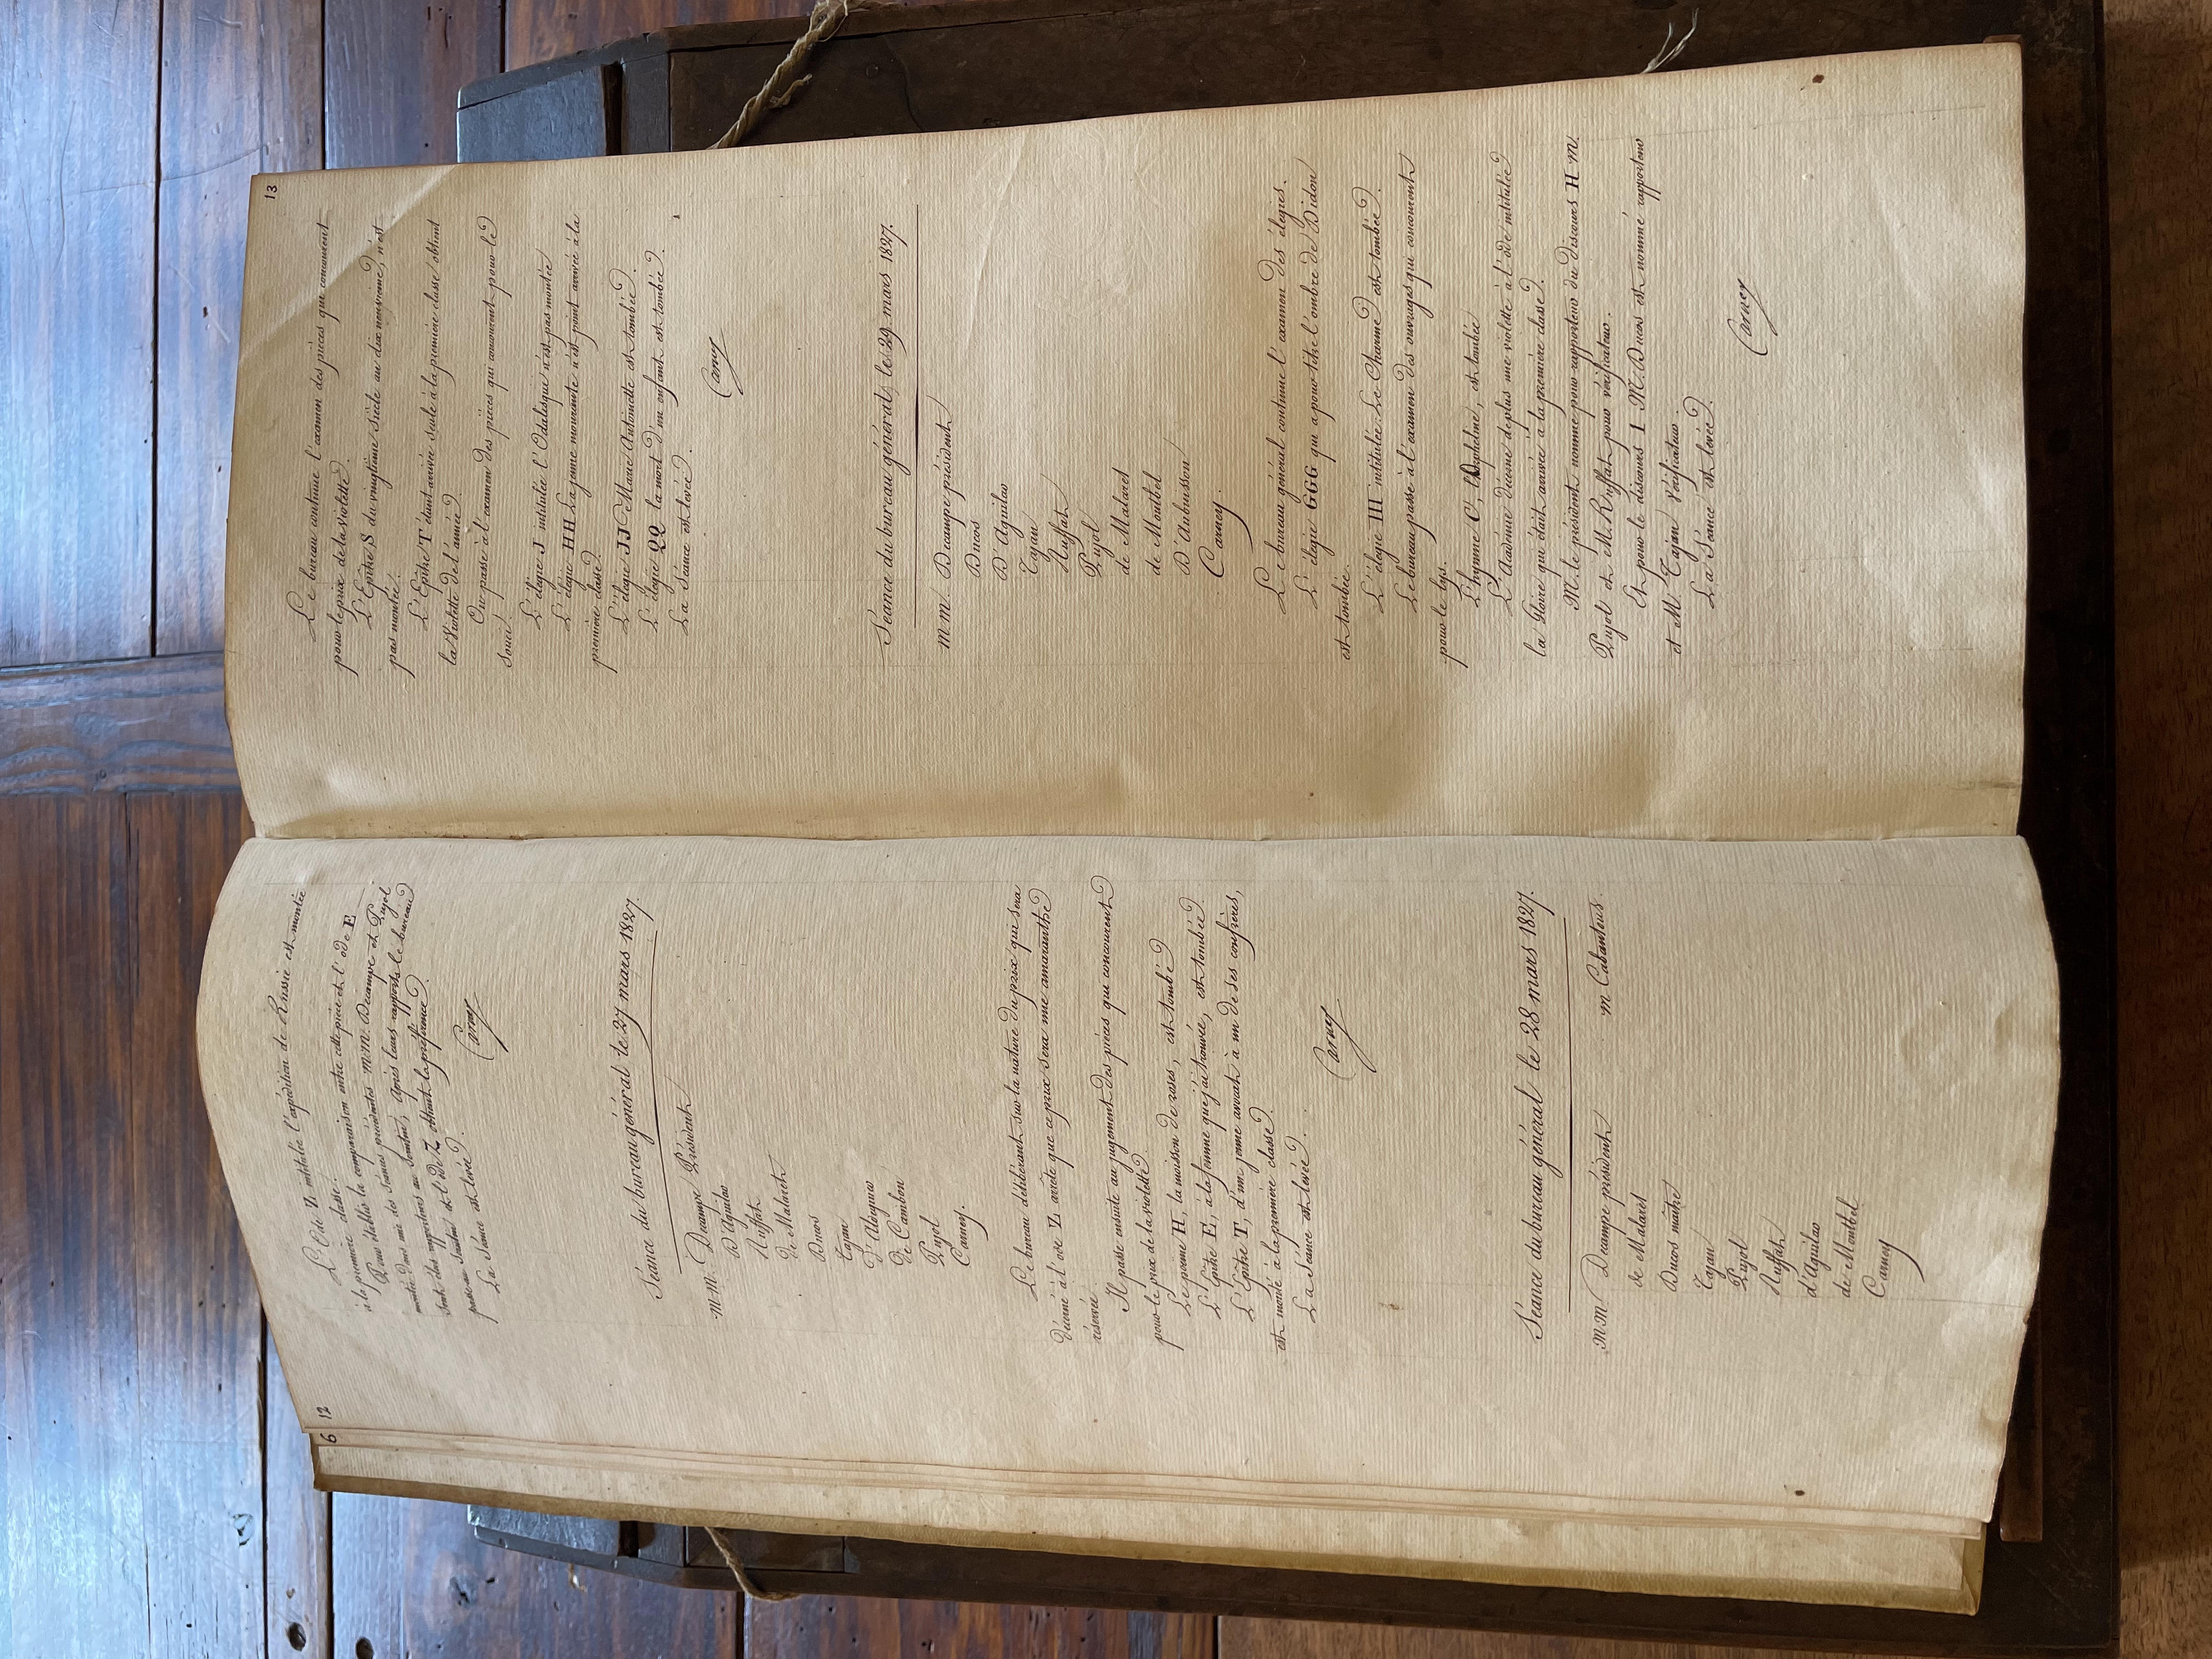 6
12
L'Ode Z intitulée l'expédition de Russie est montée
à la première classe.
Pour établir la comparaison entre cette pièce et l'ode E
montée dans une des séances précédentes M.M. Decampe et Pujol
sont élus rapporteurs au scrutin, après leurs rapports le bureau
passe au scrutin et l'ode Z obtient la préférence.
La Séance est levée.
Carney
Séance du bureau général le 27 mars 1827.
m.m. Decampe Président
D'Aguilar
Ruffat
de Malaret
Ducos
Tajan
d'Adéguier
De Cambon
Pujol
Carney.
Le bureau délibérant sur la nature du prix qui sera
décerné à l'ode Z arrête que ce prix sera une amaranthe
réservée.
Il passe ensuite au jugement des pièces qui concourent
pour le prix de la violette.
Le poème H, la moisson de roses, est tombé
L'Epitre E, à la femme que j'ai trouvée, est tombée.
L'Epitre T, d'un jeune avocat à un de ses confrères,
est monté à la première classe.
La Séance est levée.
Carney
Séance du bureau général le 28 mars 1827.
m m Decampe président m Cabantous
de Malaret
Ducos maître
Tajan
Pujol
Ruffat
d'Aguilar
de Montbel
Carney
13
Le bureau continue l'examen des pièces qui concourent
pour le prix de la violette.
L'Epitre S du vingtième siècle au dix neuvième, n'est
pas montée.
L'Epitre T étant arrivée seule à la première classe obtient
la Violette de l'année.
On passe à l'examen des pièces qui concourent pour le
souci.
L'élégie J intitulée l'Odalisque n'est pas montée
L'élégie HH La jeune mourante n'est point arrivée à la
première classe.
L'élégie JJ Marie Antoinette est tombée.
L'élégie QQ la mort d'un enfant est tombée.
La Séance est levée.
Carney
Séance du bureau général, le 29 mars 1827.
m.m. Decampe président
Ducos
D'Aguilar
Tajan
Ruffat
Pujol
de Malaret
de Montbel
D'Aubuisson
Carney.
Le bureau général continue l'examen des élégies.
L'élégie GGG qui a pour titre l'ombre de Didon
est tombée.
L'élégie III intitulée Le Charme est tombée.
Le bureau passe à l'examen des ouvrages qui concourent
pour le lys.
L'hymne C, est tombée
L'Académie décerne de plus une violette à l'ode intitulée
la Gloire qui était arrivée à la première classe.
M. le président nomme pour rapporteur du discours H m.
Pujol et M. Ruffat pour vérificateur.
Et pour le discours I M. Ducos est nommé rapporteur
et M. Tajan vérificateur.
La Séance est levée.
Carney